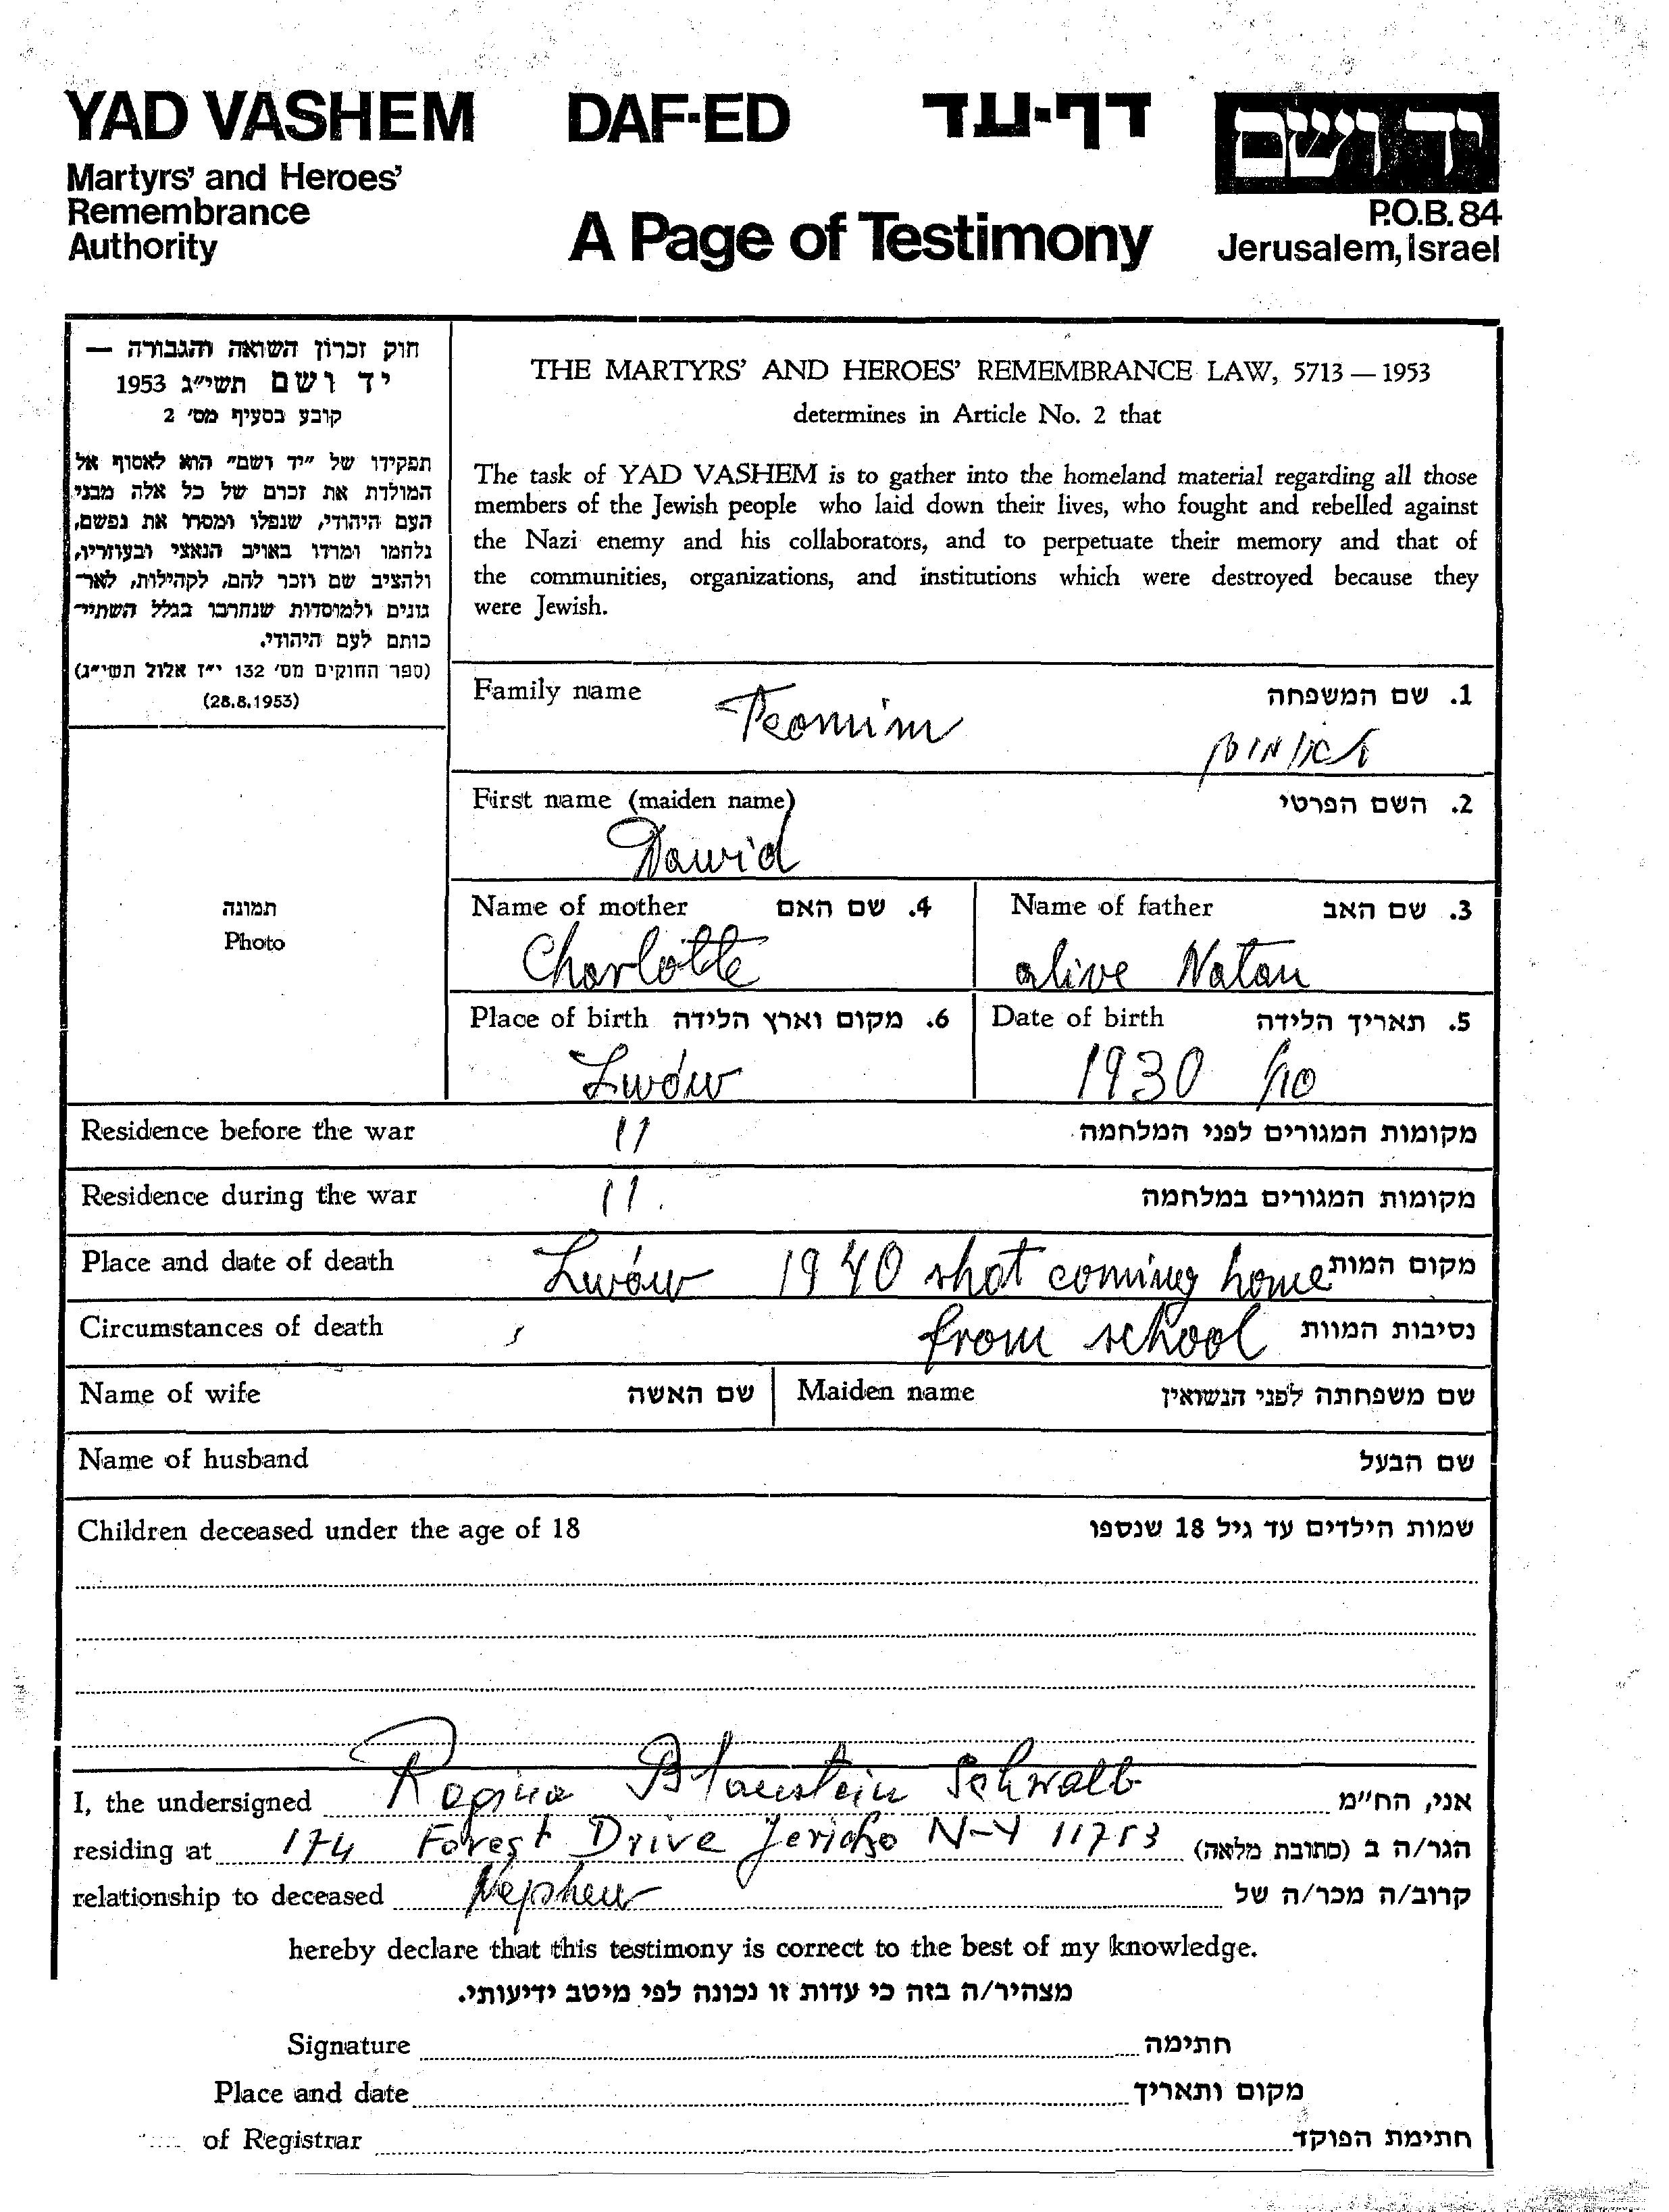 YAD VASHEM DAF-ED דף-עד יד ושם
Martyrs' and Heroes'
Remembrance
Authority
A Page of Testimony
P.O.B. 84
Jerusalem, Israel
חוק זכרון השואה והגבורה —
יד ושם תשי״ג 1953
קובע בסעיף מס׳ 2
תפקידו של ״יד ושם״ הוא לאסוף אל
המולדת את זכרם של כל אלה מבני
העם היהודי, שנפלו ומסרו את נפשם,
נלחמו ומרדו באויב הנאצי ובעוזריו,
ולהציב שם וזכר להם, לקהילות, לאר־
גונים ולמוסדות שנחרבו בגלל השתיי־
כותם לעם היהודי.
(ספר החוקים מס׳ 132 י״ז אלול תשי״ג)
(28.8.1953)
THE MARTYRS' AND HEROES' REMEMBRANCE LAW, 5713 — 1953
determines in Article No. 2 that
The task of YAD VASHEM is to gather into the homeland material regarding all those
members of the Jewish people who laid down their lives, who fought and rebelled against
the Nazi enemy and his collaborators, and to perpetuate their memory and that of
the communities, organizations, and institutions which were destroyed because they
were Jewish.
Family name 1. שם המשפחה
Teomim
First name (maiden name) 2. השם הפרטי
Dawid
תמונה
Photo
Name of mother 4. שם האם Name of father 3. שם האב
Charlotte alive Natan
Place of birth 6. מקום וארץ הלידה Date of birth 5. תאריך הלידה
Lwów 1930
Residence before the war 11 מקומות המגורים לפני המלחמה
Residence during the war 11. מקומות המגורים במלחמה
Place and date of death Lwów 1940 shot coming home מקום המות
Circumstances of death from school נסיבות המוות
Name of wife שם האשה Maiden name שם משפחתה לפני הנשואין
Name of husband שם הבעל
Children deceased under the age of 18 שמות הילדים עד גיל 18 שנספו
I, the undersigned Regina Blaustein Schwalb אני, הח״מ
residing at 174 Forest Drive Jericho N-Y 11753 הגר/ה ב (כתובת מלאה)
relationship to deceased Nephew קרוב/ה מכר/ה של
hereby declare that this testimony is correct to the best of my knowledge.
מצהיר/ה בזה כי עדות זו נכונה לפי מיטב ידיעותי.
Signature חתימה
Place and date מקום ותאריך
of Registrar חתימת הפוקד